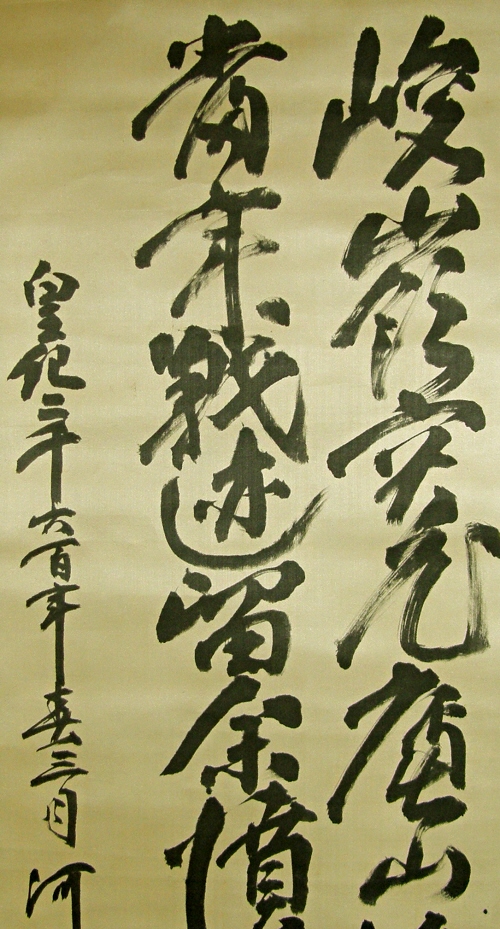 峻嶺突兀廬山
當年戰迹留余憤
皇紀二千六百年春三月 河